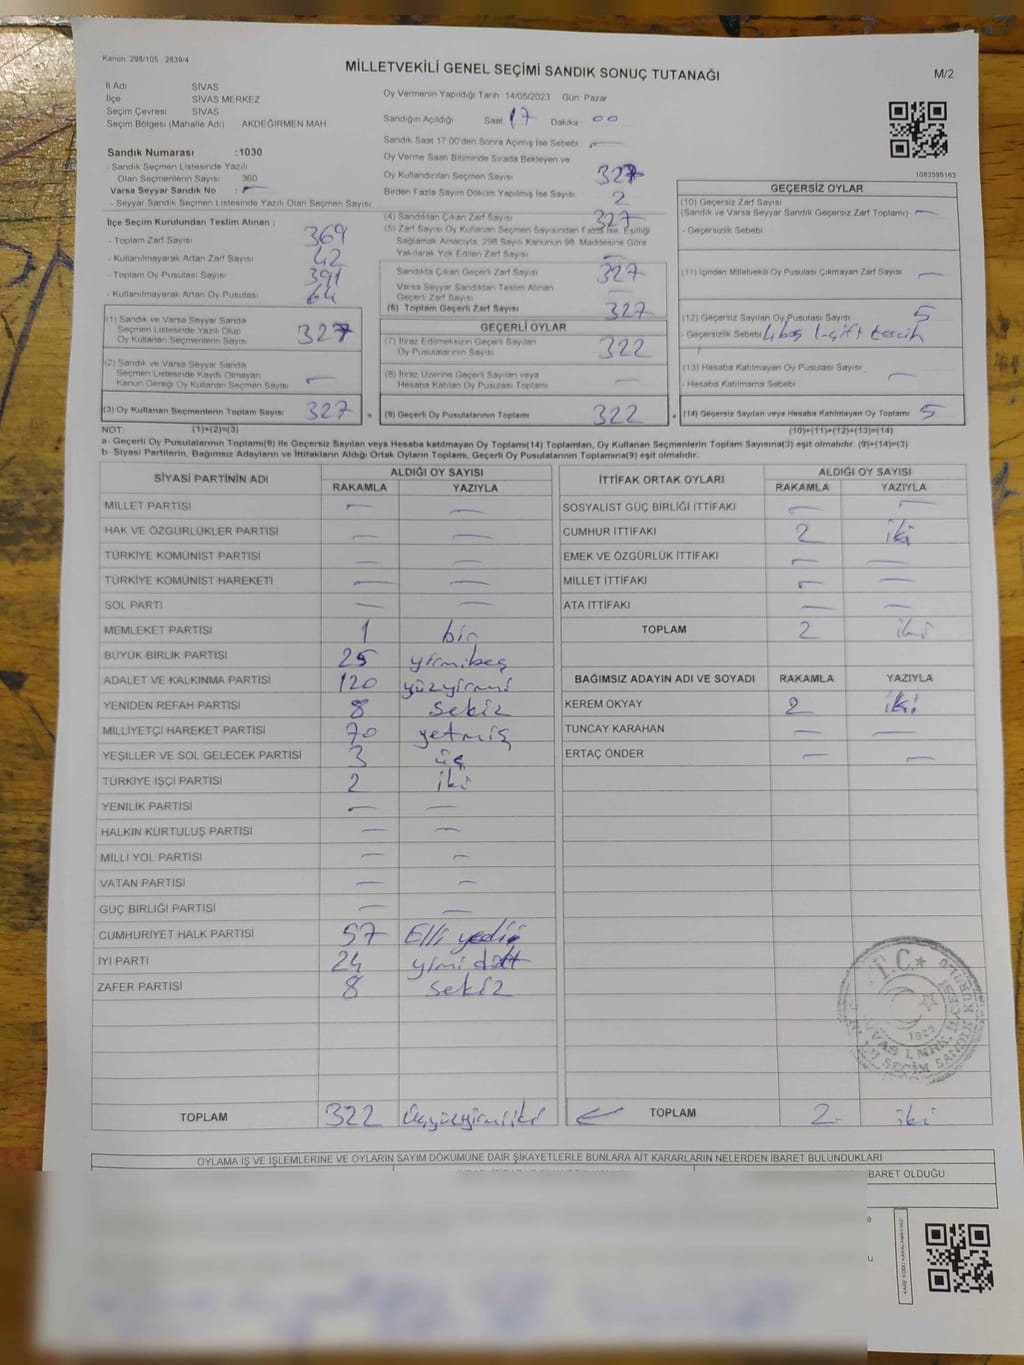 Kanun 298/105 2839/4
MİLLETVEKİLİ GENEL SEÇİMİ SANDIK SONUÇ TUTANAĞI
M/2
İl Adı SİVAS
İlçe SİVAS MERKEZ
Seçim Çevresi SİVAS
Seçim Bölgesi (Mahalle Adı) AKDEĞİRMEN MAH
Sandık Numarası :1030
- Sandık Seçmen Listesinde Yazılı
Olan Seçmenlerin Sayısı 360
Varsa Seyyar Sandık No : –
- Seyyar Sandık Seçmen Listesinde Yazılı Olan Seçmen Sayısı
Oy Vermenin Yapıldığı Tarih 14/05/2023 Gün: Pazar
Sandığın Açıldığı Saat 17 Dakika 00
Sandık Saat 17.00'den Sonra Açılmış İse Sebebi –
Oy Verme Saati Bitiminde Sırada Bekleyen ve
Oy Kullandırılan Seçmen Sayısı 327
Birden Fazla Sayım Döküm Yapılmış İse Sayısı 2
1083595163
İlçe Seçim Kurulundan Teslim Alınan ;
- Toplam Zarf Sayısı 369
- Kullanılmayarak Artan Zarf Sayısı 42
- Toplam Oy Pusulası Sayısı 391
- Kullanılmayarak Artan Oy Pusulası 64
(1) Sandık ve Varsa Seyyar Sandık
Seçmen Listesinde Yazılı Olup
Oy Kullanan Seçmenlerin Sayısı 327
(2) Sandık ve Varsa Seyyar Sandık
Seçmen Listesinde Kaydı Olmayan
Kanun Gereği Oy Kullanan Seçmen Sayısı –
(3) Oy Kullanan Seçmenlerin Toplam Sayısı 327
(4) Sandıktan Çıkan Zarf Sayısı 327
(5) Zarf Sayısı Oy Kullanan Seçmen Sayısından Fazla İse, Eşitliği
Sağlamak Amacıyla, 298 Sayılı Kanunun 98. Maddesine Göre
Yakılarak Yok Edilen Zarf Sayısı –
Sandıkta Çıkan Geçerli Zarf Sayısı 327
Varsa Seyyar Sandıktan Teslim Alınan
Geçerli Zarf Sayısı –
(6) Toplam Geçerli Zarf Sayısı 327
GEÇERLİ OYLAR
(7) İtiraz Edilmeksizin Geçerli Sayılan
Oy Pusulalarının Sayısı 322
(8) İtiraz Üzerine Geçerli Sayılan veya
Hesaba Katılan Oy Pusulası Toplamı –
(9) Geçerli Oy Pusulalarının Toplamı 322
GEÇERSİZ OYLAR
(10) Geçersiz Zarf Sayısı
(Sandık ve Varsa Seyyar Sandık Geçersiz Zarf Toplamı) –
- Geçersizlik Sebebi
(11) İçinden Milletvekili Oy Pusulası Çıkmayan Zarf Sayısı –
(12) Geçersiz Sayılan Oy Pusulası Sayısı 5
- Geçersizlik Sebebi 4 boş 1-çift tercih
(13) Hesaba Katılmayan Oy Pusulası Sayısı –
- Hesaba Katılmama Sebebi
(14) Geçersiz Sayılan veya Hesaba Katılmayan Oy Toplamı 5
NOT: (1)+(2)=(3) (10)+(11)+(12)+(13)=(14)
a- Geçerli Oy Pusulalarının Toplamı(9) ile Geçersiz Sayılan veya Hesaba katılmayan Oy Toplamı(14) Toplamları, Oy Kullanan Seçmenlerin Toplam Sayısına(3) eşit olmalıdır. (9)+(14)=(3)
b- Siyasi Partilerin, Bağımsız Adayların ve İttifakların Aldığı Ortak Oyların Toplamı, Geçerli Oy Pusulalarının Toplamına(9) eşit olmalıdır.
SİYASİ PARTİNİN ADI ALDIĞI OY SAYISI
RAKAMLA YAZIYLA
MİLLET PARTİSİ – –
HAK VE ÖZGÜRLÜKLER PARTİSİ – –
TÜRKİYE KOMÜNİST PARTİSİ – –
TÜRKİYE KOMÜNİST HAREKETİ – –
SOL PARTİ – –
MEMLEKET PARTİSİ 1 bir
BÜYÜK BİRLİK PARTİSİ 25 yirmibeş
ADALET VE KALKINMA PARTİSİ 120 yüzyirmi
YENİDEN REFAH PARTİSİ 8 sekiz
MİLLİYETÇİ HAREKET PARTİSİ 70 yetmiş
YEŞİLLER VE SOL GELECEK PARTİSİ 3 üç
TÜRKİYE İŞÇİ PARTİSİ 2 iki
YENİLİK PARTİSİ – –
HALKIN KURTULUŞ PARTİSİ – –
MİLLİ YOL PARTİSİ – –
VATAN PARTİSİ – –
GÜÇ BİRLİĞİ PARTİSİ – –
CUMHURİYET HALK PARTİSİ 57 Elli yedi
İYİ PARTİ 24 yimi dört
ZAFER PARTİSİ 8 sekiz
TOPLAM 322 üçyüzyirmiiki
İTTİFAK ORTAK OYLARI ALDIĞI OY SAYISI
RAKAMLA YAZIYLA
SOSYALİST GÜÇ BİRLİĞİ İTTİFAKI – –
CUMHUR İTTİFAKI 2 iki
EMEK VE ÖZGÜRLÜK İTTİFAKI – –
MİLLET İTTİFAKI – –
ATA İTTİFAKI – –
TOPLAM 2 iki
BAĞIMSIZ ADAYIN ADI VE SOYADI RAKAMLA YAZIYLA
KEREM OKYAY 2 iki
TUNCAY KARAHAN – –
ERTAÇ ÖNDER – –
TOPLAM 2 iki
T.C.
1923
OYLAMA İŞ VE İŞLEMLERİNE VE OYLARIN SAYIM DÖKÜMÜNE DAİR ŞİKAYETLERLE BUNLARA AİT KARARLARIN NELERDEN İBARET BULUNDUKLARI
İBARET OLDUĞU